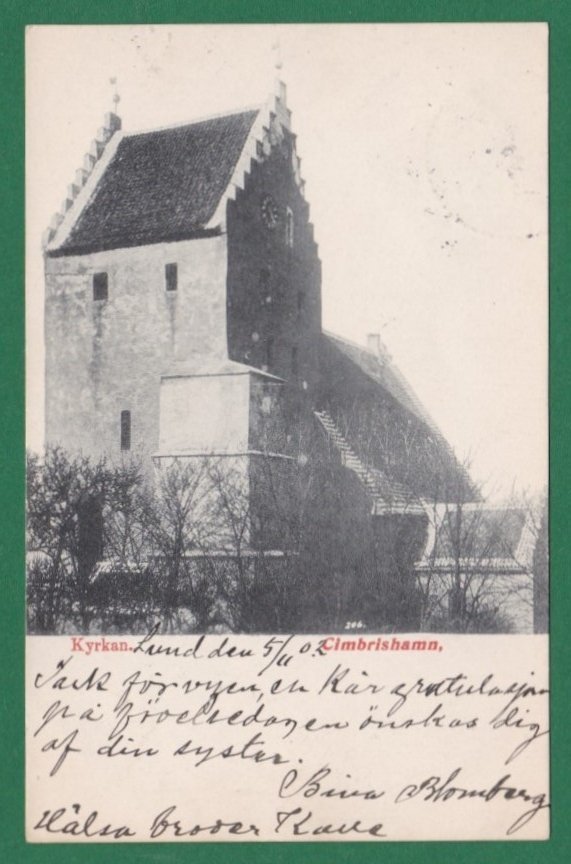 206.
Kyrkan. Lund den 5/11 02 Cimbrishamn,
Tack för vyen, en kär gratulasjon
på födelsedagen önskas dig
af din syster.
Bina Blomberg
Hälsa broder